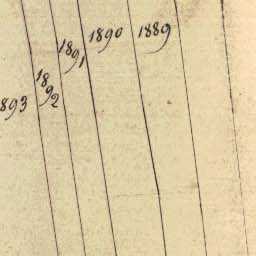 1889
1890
1891
1892
893